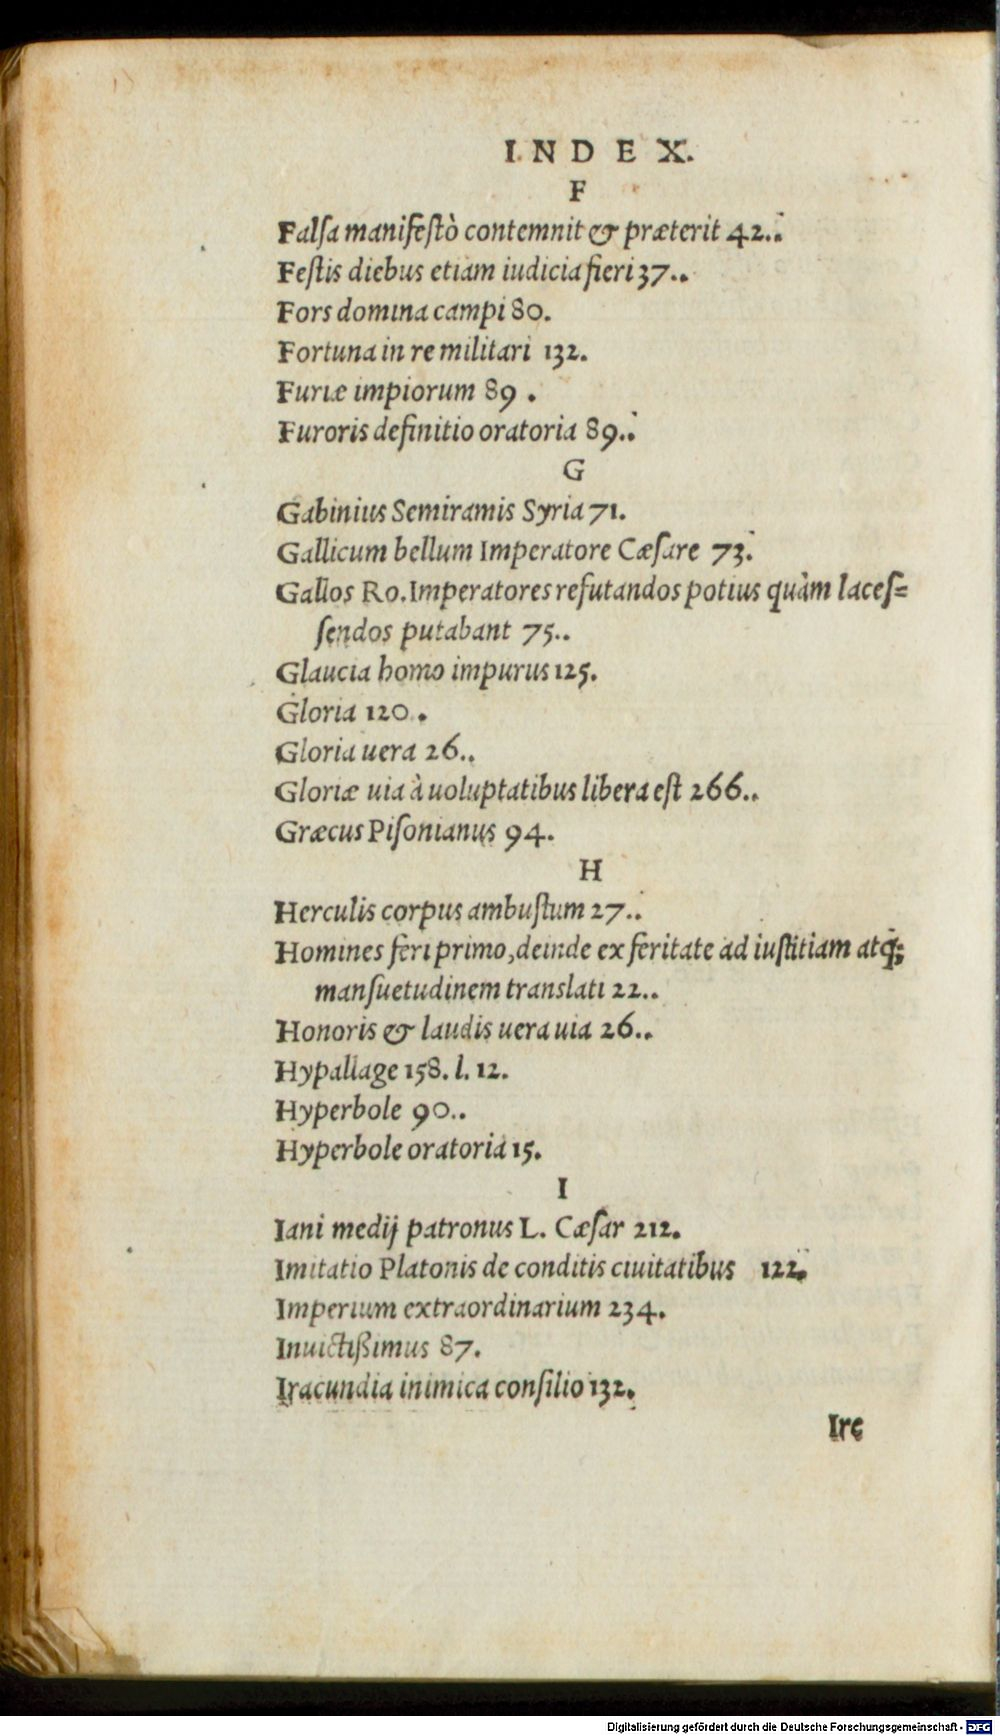 INDEX.
F
Falſa manifeſtò contemnit & præterit 42..
Feſtis diebus etiam iudicia fieri 37..
Fors domina campi 80.
Fortuna in re militari 132.
Furiæ impiorum 89.
Furoris definitio oratoria 89..
G
Gabinius Semiramis Syria 71.
Gallicum bellum Imperatore Cæſare 73.
Gallos Ro. Imperatores refutandos potius quàm laceſ=
ſendos putabant 75..
Glaucia homo impurus 125.
Gloria 120.
Gloria uera 26..
Gloriæ uia à uoluptatibus libera eſt 266..
Græcus Piſonianus 94.
H
Herculis corpus ambuſtum 27..
Homines feri primo, deinde ex feritate ad iuſtitiam atq́;
manſuetudinem translati 22..
Honoris & laudis uera uia 26..
Hypallage 158. l. 12.
Hyperbole 90..
Hyperbole oratoria 15.
I
Iani medij patronus L. Cæſar 212.
Imitatio Platonis de conditis ciuitatibus 122.
Imperium extraordinarium 234.
Inuictißimus 87.
Iracundia inimica conſilio 132.
Ire
Digitalisierung gefördert durch die Deutsche Forschungsgemeinschaft - DFG